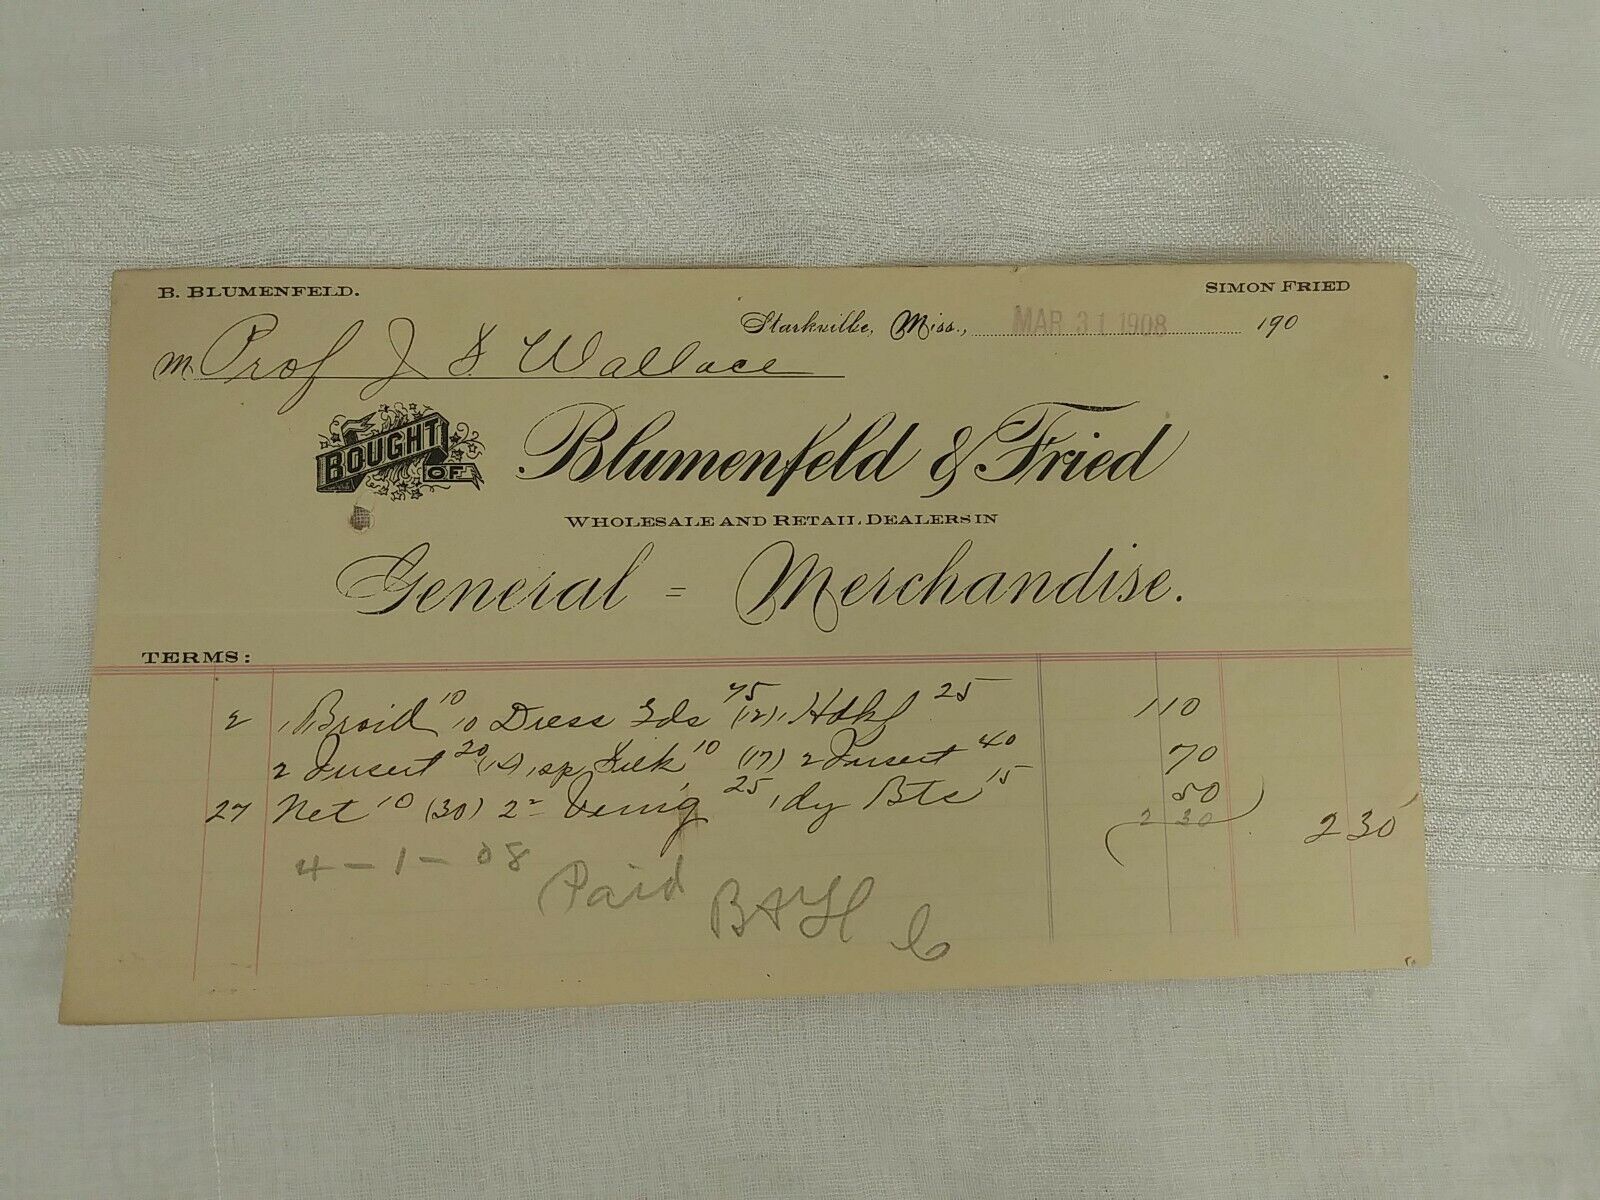 B. BLUMENFELD. SIMON FRIED
Starkville, Miss., MAR 31 1908 190
M Prof J S Wallace
BOUGHT OF Blumenfeld & Fried
WHOLESALE AND RETAIL DEALERS IN
General = Merchandise.
TERMS:
2 1 Braid 10 10 Dress Gds 75 (12) 1 Hdkf 25 1 10
2 Insert 20 (14) 1 sp Silk 10 (17) 2 Insert 40 70
27 Net 10 (30) 2 25 1 dy Bts 15 50
2 30 2 30
4-1-08 Paid